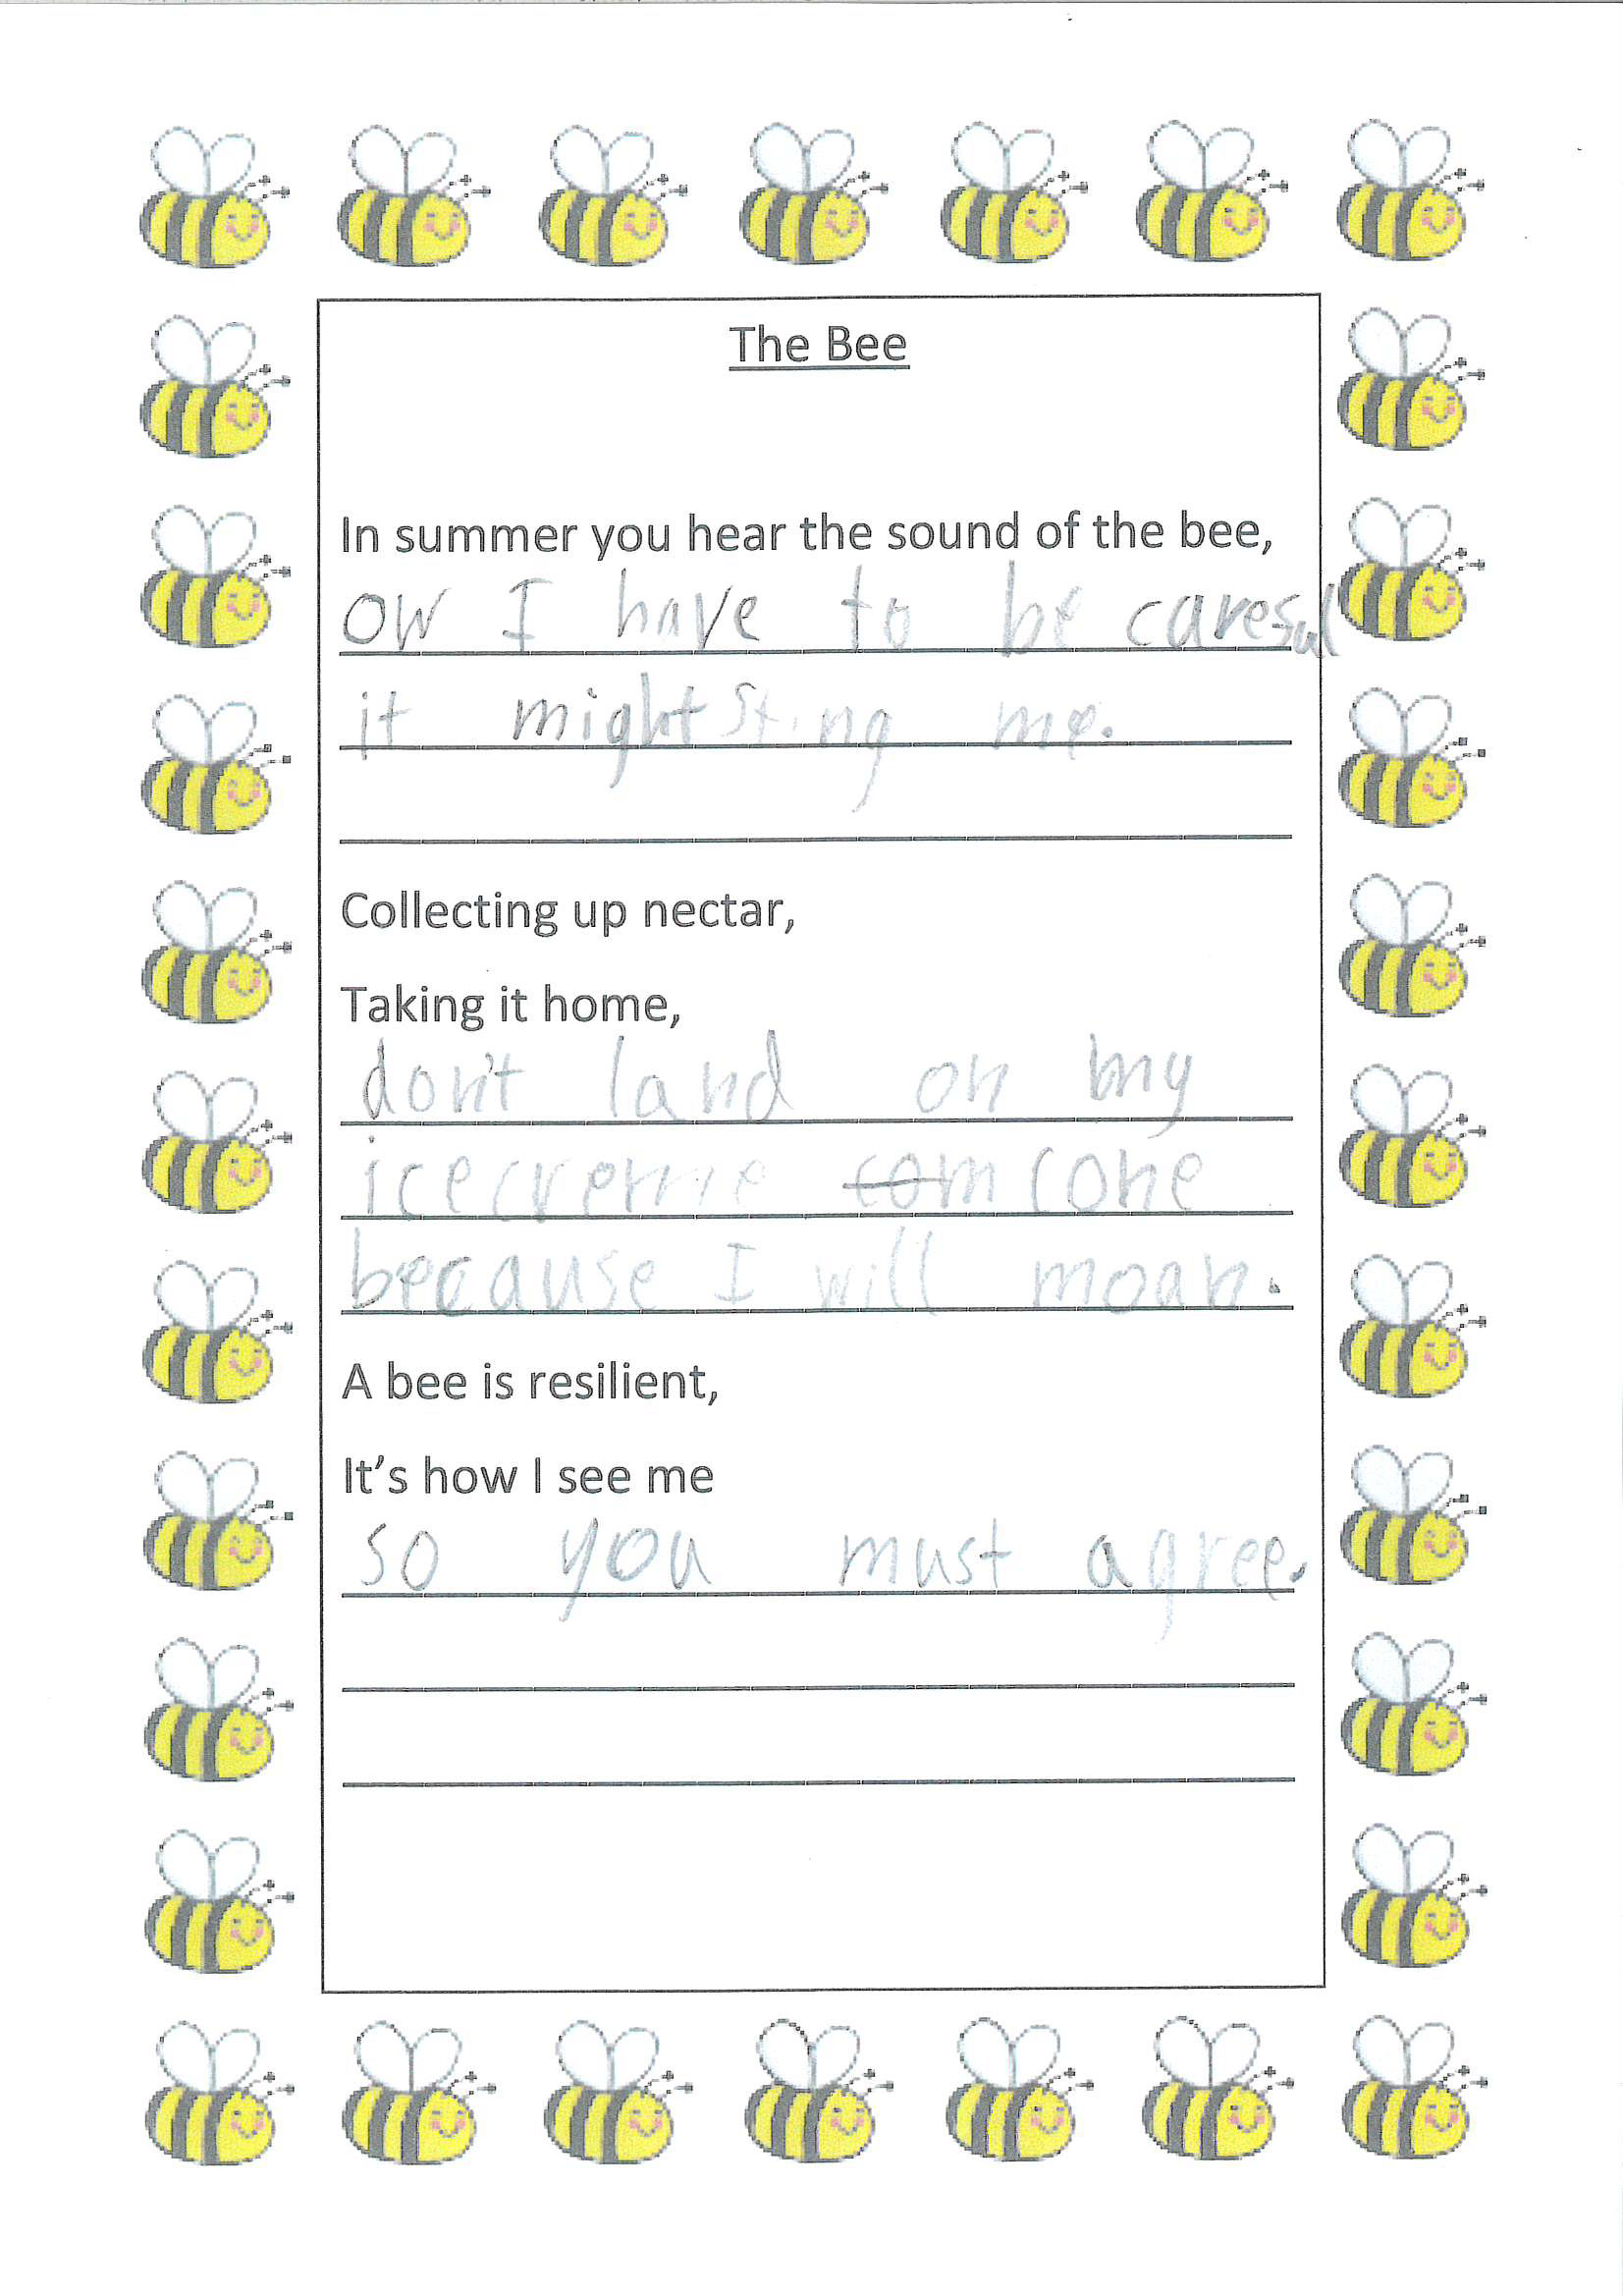 The Bee
In summer you hear the sound of the bee,
ow I have to be caresul
it might sting me.
Collecting up nectar,
Taking it home,
don't land on my
icecreme com cone
because I will moan.
A bee is resilient,
It's how I see me
so you must agree.